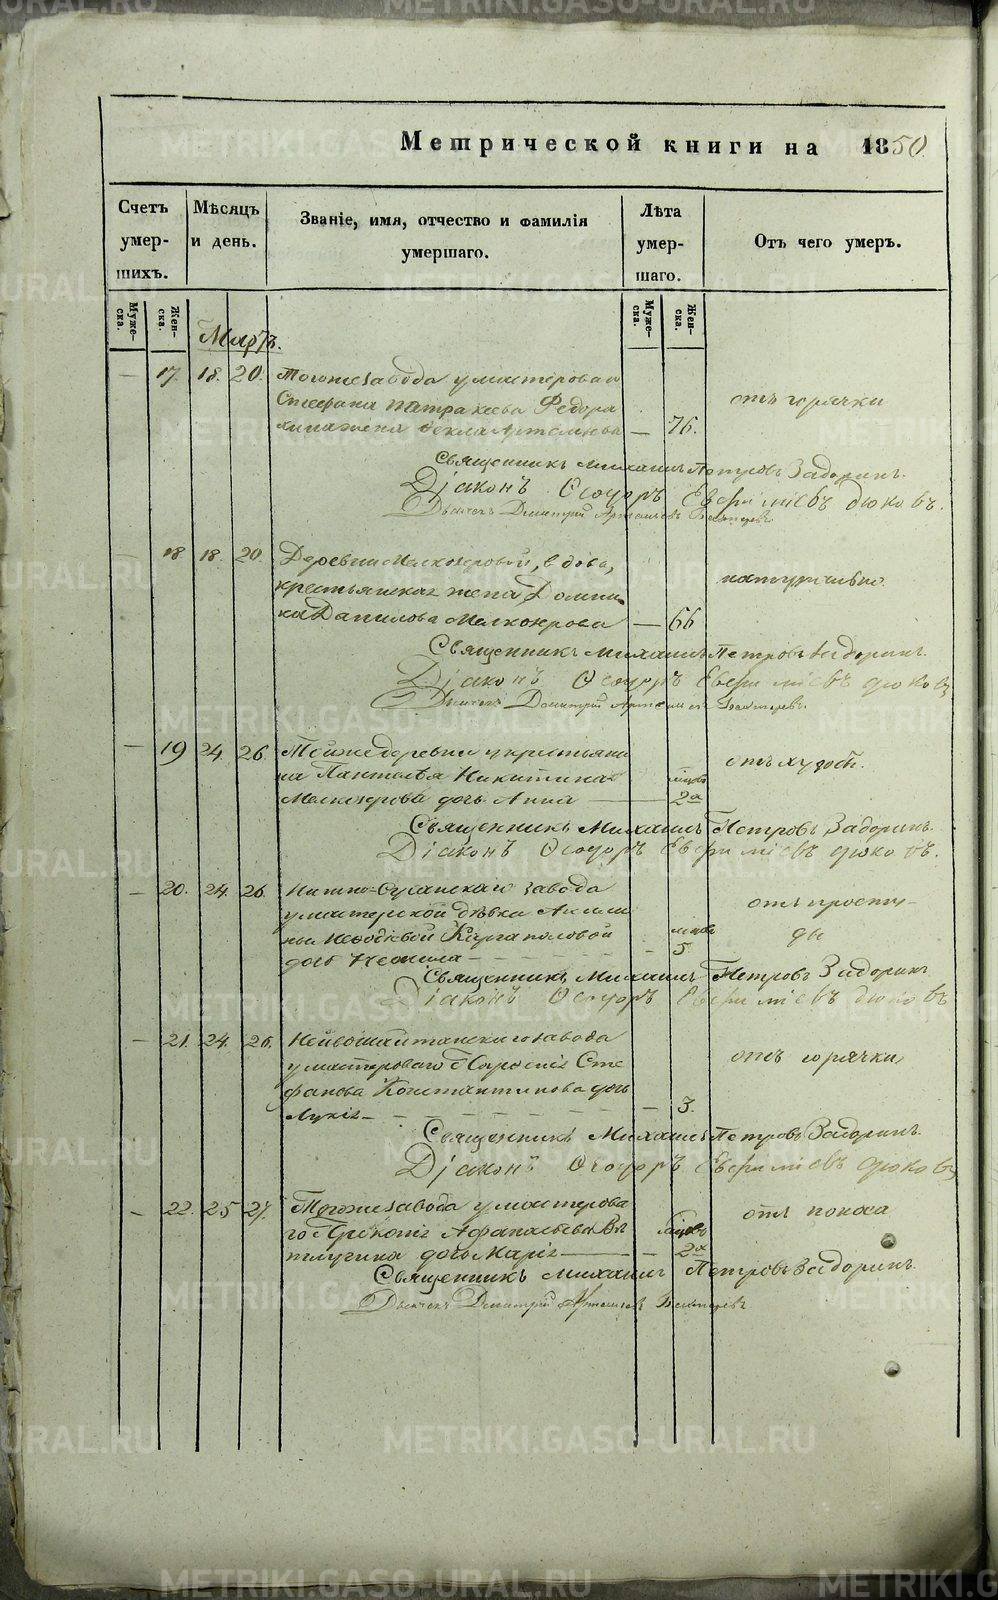 Метрической книги на 1850
Счетъ умер- шихъ.
Мѣсяцъ и день.
Званіе, имя, отчество и фамилія умершаго.
Лѣта умер- шаго.
Отъ чего умеръ.
Муже- ска.
Жен- ска.
Муже- ска.
Жен- ска.
Мартъ.
— 17. 18. 20. Тогоже завода умастероваго
Стефана Федора
жена Текла Артемьева — 76. отъ горячки
Священникъ Михаилъ Петровъ Задоринъ.
Діаконъ Ѳеодоръ Евфиміевъ Дюковъ.
Дьячекъ Дмитрій
— 18 18. 20. Деревни Мелкозеровой, вдова,
крестьянская жена Домни-
ка Данилова Мелкозерова — 66 натурально
Священникъ Михаилъ Петровъ Задоринъ.
Діаконъ Ѳеодоръ Евфиміевъ Дюковъ
Дьячекъ Дмитрій
— 19 24. 26. Тойже деревни укрестьяни
на Пантелѣя Никитина
Мелкозерова дочь Анна — 2х отъ худобы.
Священникъ Михаилъ Петровъ Задоринъ.
Діаконъ Ѳеодоръ Евфиміевъ Дюковъ.
— 20. 24. 26. Нижно-Сусанскаго завода
умастерской дѣвки
Каргаполовой
дочь Неонила — 5 отъ просту-
ды
Священникъ Михаилъ Петровъ Задоринъ
Діаконъ Ѳеодоръ Евфиміевъ Дюковъ
— 21. 24. 26. Нейвошайтанскаго завода
умастероваго Сте
фанова Константинова дочь
Лукія — 3. отъ горячки
Священникъ Михаилъ Петровъ Задоринъ.
Діаконъ Ѳеодоръ Евфиміевъ Дюковъ
— 22. 25 27. Тогоже завода умастерова
го Прокопія Афанасьева Ве
тлугина дочь Марія — 2х отъ поноса
Священникъ Михаилъ Петровъ Задоринъ.
Дьячекъ Дмитрій
METRIKI.GASO-URAL.RU